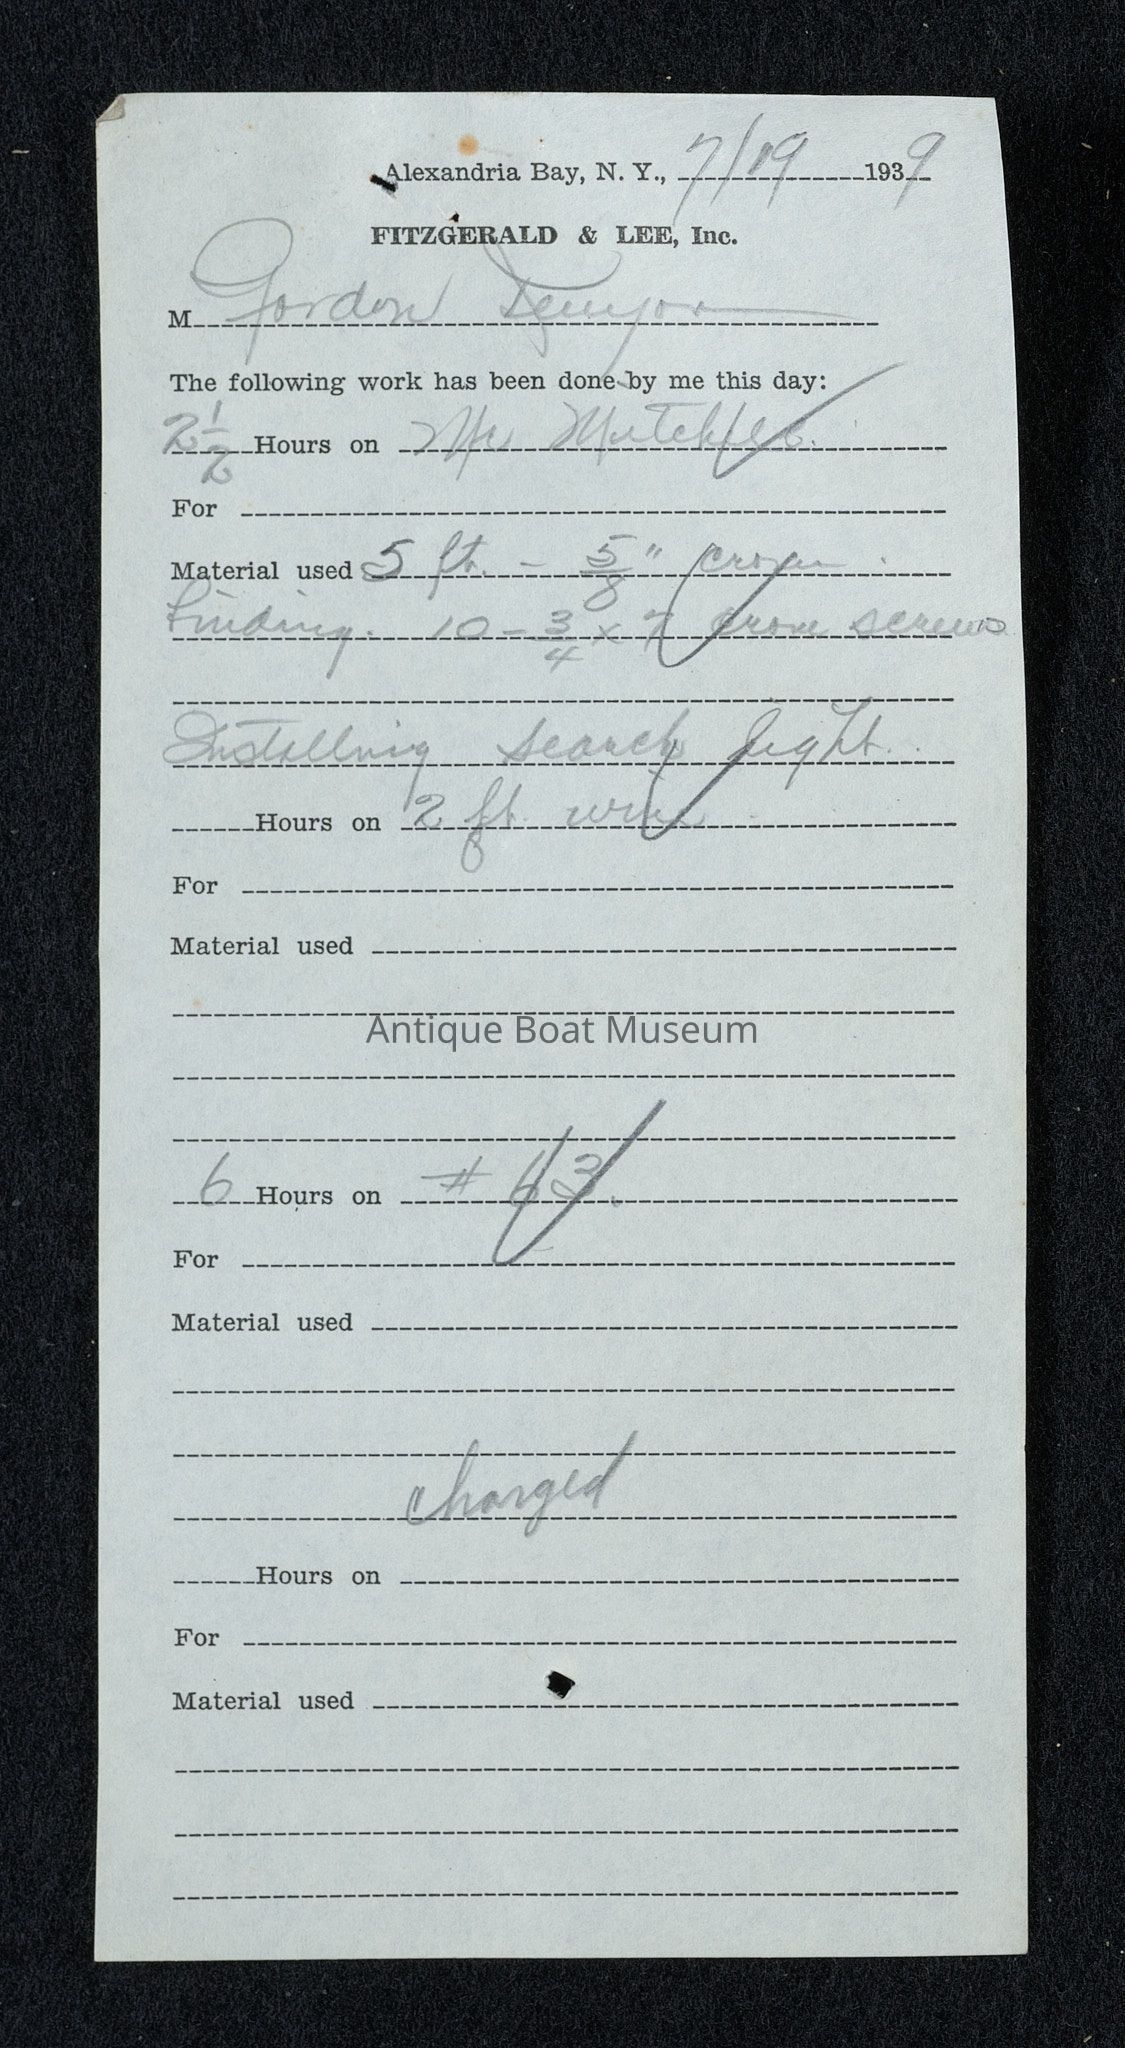 Alexandria Bay, N. Y., 7/19 1939
FITZGERALD & LEE, Inc.
M Gordon
The following work has been done by me this day:
2 1/2 Hours on Mr
For
Material used 5 ft. - 5/8" crom
binding. 10 - 3/4 x 7 crom screws
Installing search light.
Hours on 2 ft. wire
For
Material used
Antique Boat Museum
6 Hours on # 63.
For
Material used
charged
Hours on
For
Material used